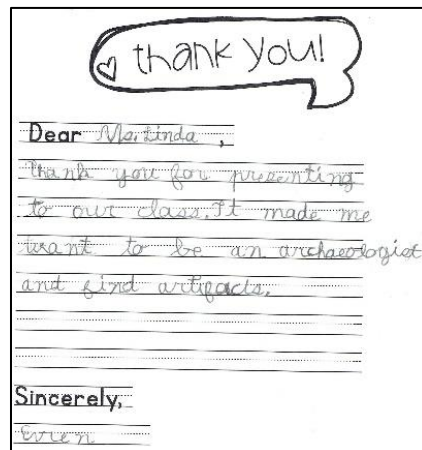 thank you!
Dear Ms. Linda,
Thank you for presenting
to our class. It made me
want to be an archaeologist
and find artifacts.
Sincerely,
Evren